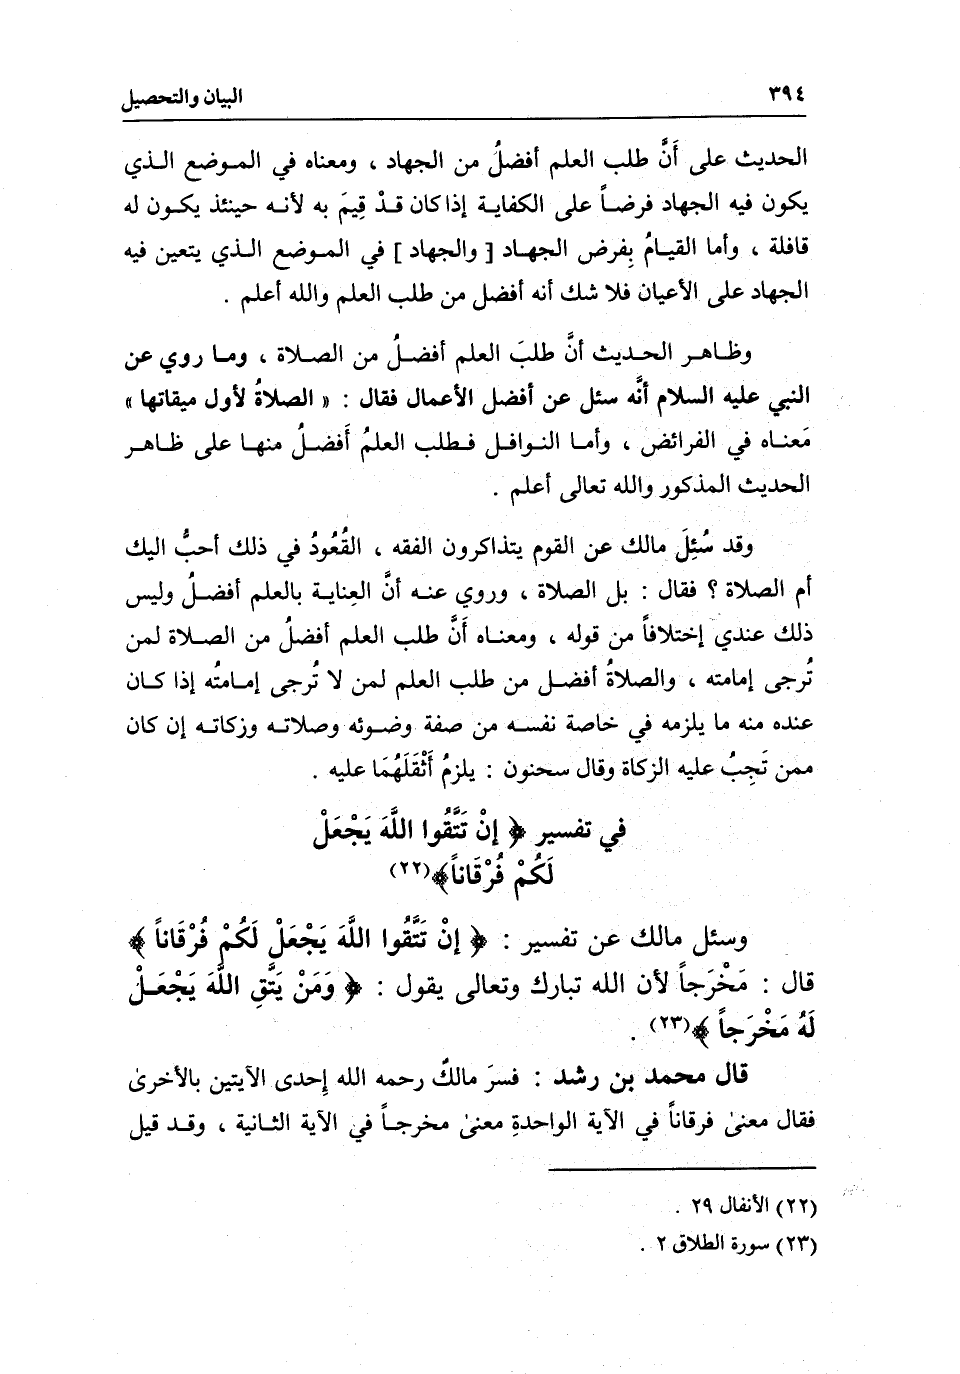 ٣٩٤ البيان والتحصيل
الحديث على أَنَّ طلب العلم أفضلُ من الجهاد ، ومعناه في الموضع الذي
يكون فيه الجهاد فرضاً على الكفاية إذا كان قدْ قِيمَ به لأنه حينئذ يكون له
قافلة ، وأما القيامُ بِفرض الجهاد [ والجهاد ] في الموضع الذي يتعين فيه
الجهاد على الأعيان فلا شك أنه أفضل من طلب العلم والله أعلم .
وظاهر الحديث أنَّ طلبَ العلم أفضلُ من الصلاة ، وما روي عن
النبي عليه السلام أنَّه سئل عن أفضل الأعمال فقال : « الصلاةُ لأول ميقاتها »
مَعناه في الفرائض ، وأما النوافل فطلب العلمُ أَفضلُ منها على ظاهر
الحديث المذكور والله تعالى أعلم .
وقد سُئِلَ مالك عن القوم يتذاكرون الفقه ، القُعُودُ في ذلك أحبُّ اليك
أم الصلاة ؟ فقال : بل الصلاة ، وروي عنه أنَّ العِناية بالعلم أفضلُ وليس
ذلك عندي إختلافاً من قوله ، ومعناه أَنَّ طلب العلم أفضلُ من الصلاة لمن
تُرجى إمامته ، والصلاةُ أفضل من طلب العلم لمن لا تُرجى إمامتُه إذا كان
عنده منه ما يلزمه في خاصة نفسه من صفة وضوئه وصلاته وزكاته إن كان
ممن تَجِبُ عليه الزكاة وقال سحنون : يلزمُ أَثْقَلَهُمَا عليه .
في تفسير ﴿ إنْ تَتَّقُوا اللَّهَ يَجْعَلْ
لَكُمْ فُرْقَاناً﴾(٢٢)
وسئل مالك عن تفسير : ﴿ إنْ تَتَّقُوا اللَّهَ يَجْعَلْ لَكُمْ فُرْقَاناً ﴾
قال : مَخْرَجاً لأن الله تبارك وتعالى يقول : ﴿ وَمَنْ يَتَّقِ اللَّهَ يَجْعَلْ
لَهُ مَخْرَجاً ﴾(٢٣) .
قال محمد بن رشد : فسرَ مالكٌ رحمه الله إِحدى الآيتين بالأخرىٰ
فقال معنىٰ فرقاناً في الآية الواحدةِ معنىٰ مخرجاً في الآية الثانية ، وقد قيل
(٢٢) الأنفال ٢٩ .
(٢٣) سورة الطلاق ٢ .